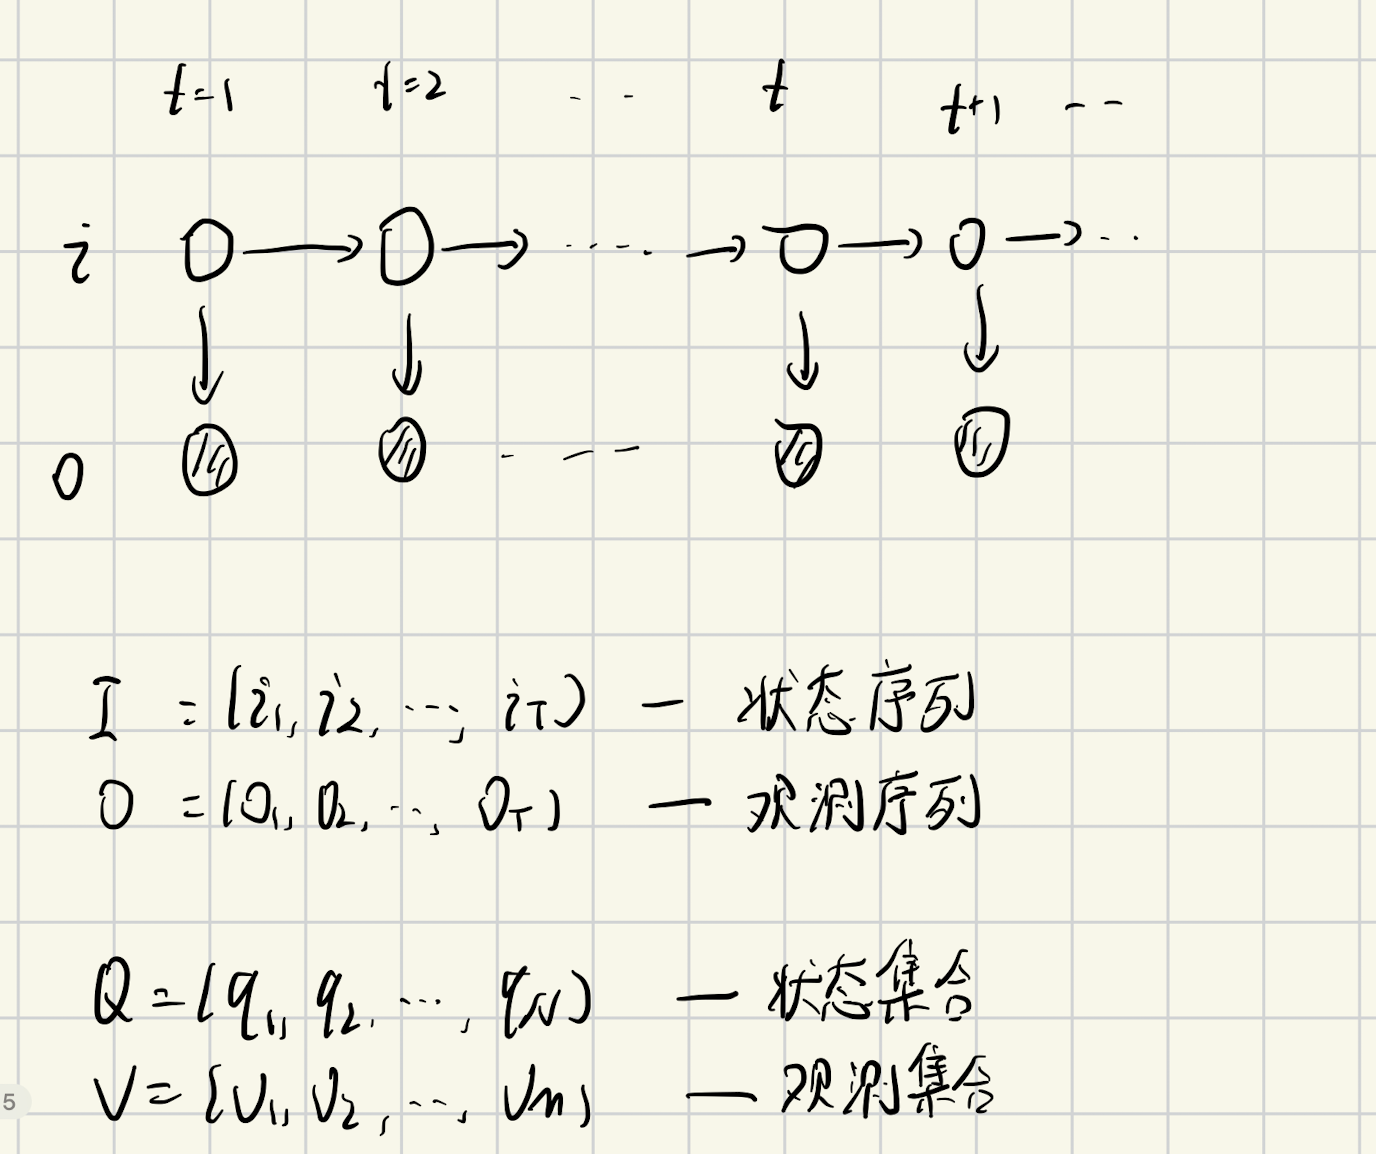 t=1 t=2 -- t t+1 --
i
o
I = (i₁, i₂, ..., i_T) — 状态序列
O = (O₁, O₂, ..., O_T) — 观测序列
Q = (q₁, q₂, ..., q_N) — 状态集合
V = {v₁, v₂, ..., v_m) — 观测集合
5